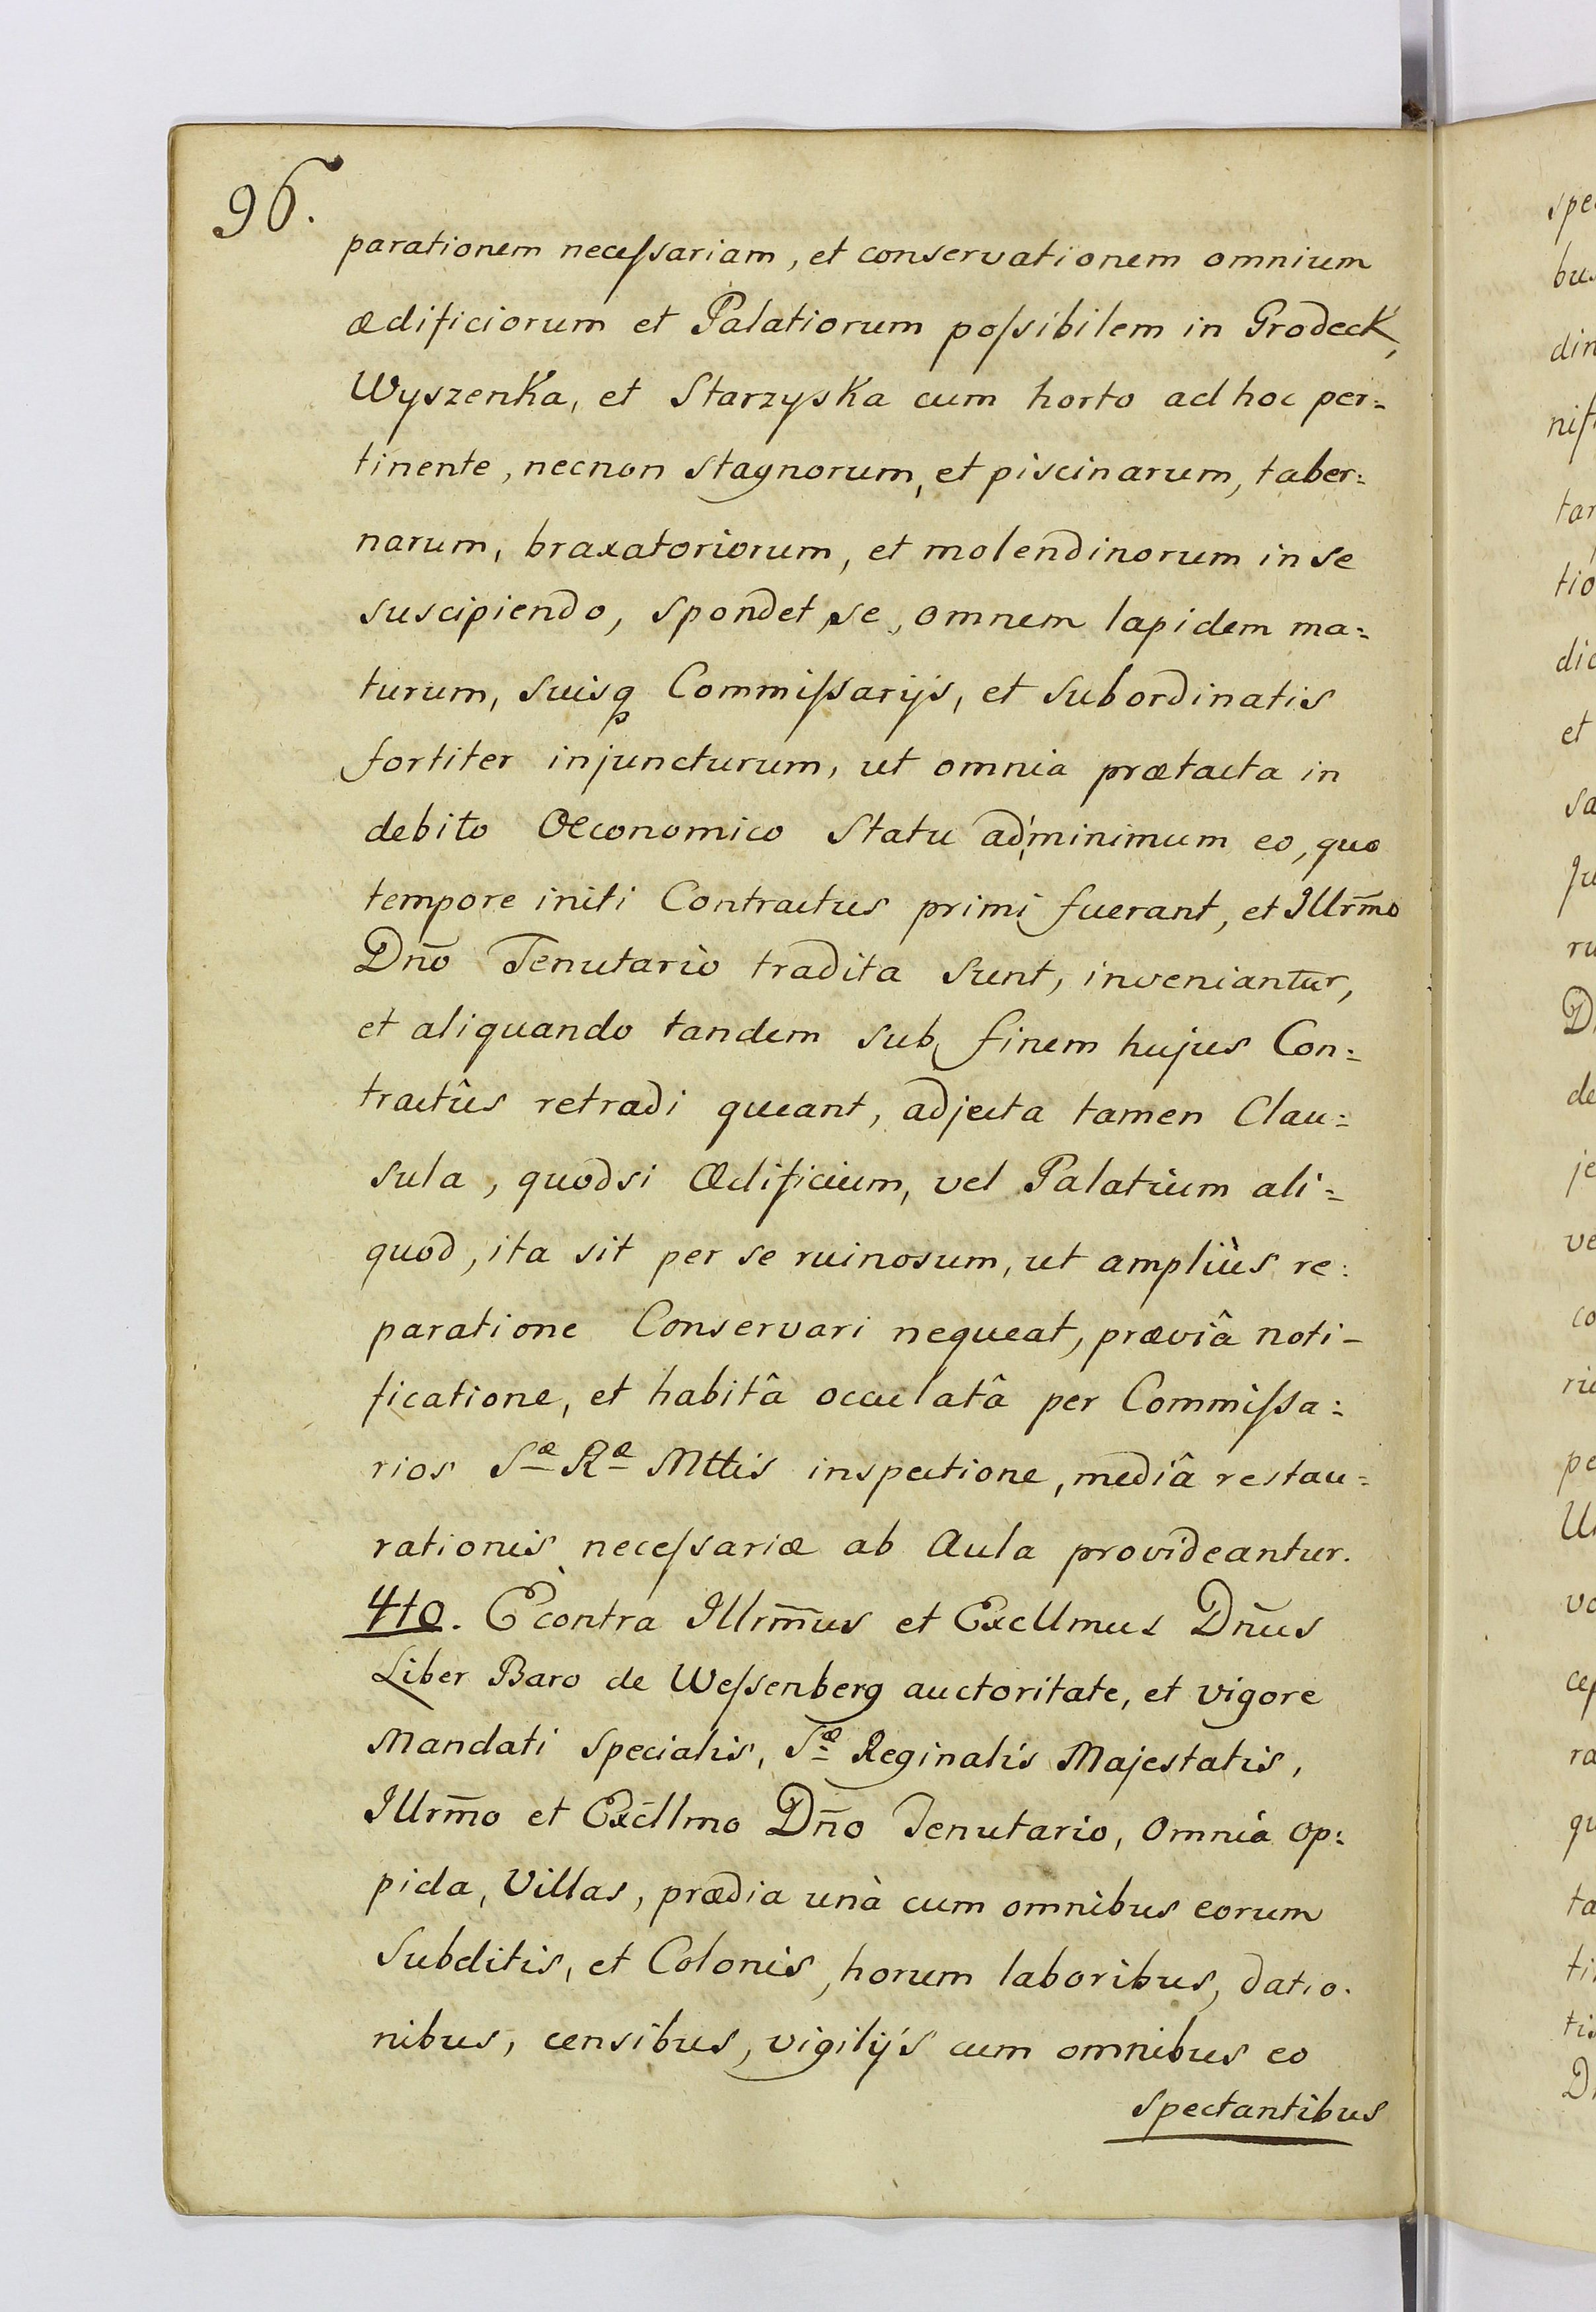 96.
parationem neceſsariam, et conservationem omnium
ædificiorum et Palatiorum poſsibilem in Grodeck,
Wyszenka, et Starzyska cum horto ad hoc per=
tinente, necnon stagnorum, et piscinarum, taber=
narum, braxatoriorum, et molendinorum in se
suscipiendo, spondet, se, omnem lapidem mo=
turum, suisq Commiſsarijs, et subordinatis
fortiter injuncturum, ut omnia prætacta in
debito Oeconomico statu ad minimum eo, quo
tempore initi Contractus primi fuerant, et Illrm̄o
Dn̄o Tenutario tradita sunt, inveniantur,
et aliquando tandem sub finem hujus Con=
tractûs retradi queant, adjecta tamen Clau=
sula, quodsi Ædificium, vel Palatium ali=
quod, ita sit per se ruinosum, ut ampliùs re=
paratione Conservari nequeat, præviâ noti-
ficatione, et habitâ occulatâ per Commiſsa=
rios Sæ Ræ Mttis inspectione, mediâ restau=
rationis neceſsariæ ab Aula provideantur.
4to. Ècontra Illrm̄us et Excllmus Dn̄us
Liber Baro de Weſsenberg auctoritate, et vigore
Mandati specialis, Sæ Reginalis Majestatis,
Illrm̄o et Excllmo Dn̄o Tenutario, omnia op=
pida, Villas, prædia unà cum omnibus eorum
subditis, et Colonis, horum laboribus, datio=
nibus, censibus, vigilijs cum omnibus eo
spectantibus